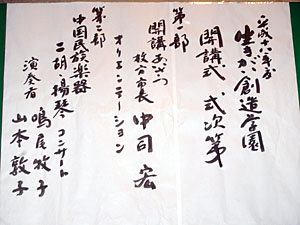 平成十八年度
生きがい創造学園
開講式 式次第
第一部
開講あいさつ
枚方市長 中司 宏
オリエンテーション
第二部
中国民族楽器
二胡・揚琴 コンサート
演奏者 鳴尾牧子
山本敦子